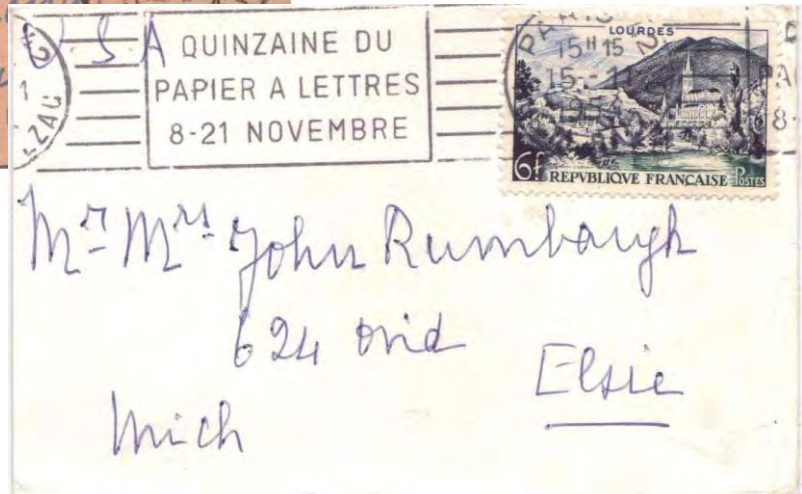 U.S.A
QUINZAINE DU
PAPIER A LETTRES
8-21 NOVEMBRE
PARIS
15H15
LOURDES
6f REPVBLIQVE FRANÇAISE POSTES
Mr Mrs John Rumbaugh
624 Ovid
Elsie
Mich